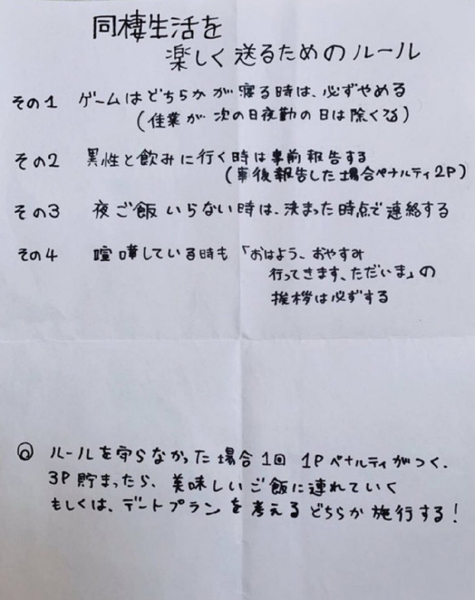 同棲生活を
楽しく送るためのルール
その1 ゲームはどちらかが寝る時は、必ずやめる
(佳業が次の日夜勤の日は除くる)
その2 異性と飲みに行く時は事前報告する
(事後報告した場合ペナルティ2P)
その3 夜ご飯いらない時は、決まった時点で連絡する
その4 喧嘩している時も「おはよう、おやすみ
行ってきます、ただいま」の
挨拶は必ずする
◎ ルールを守らなかった場合1回 1Pペナルティがつく.
3P貯まったら、美味しいご飯に連れていく
もしくは、デートプランを考えるどちらか施行する!